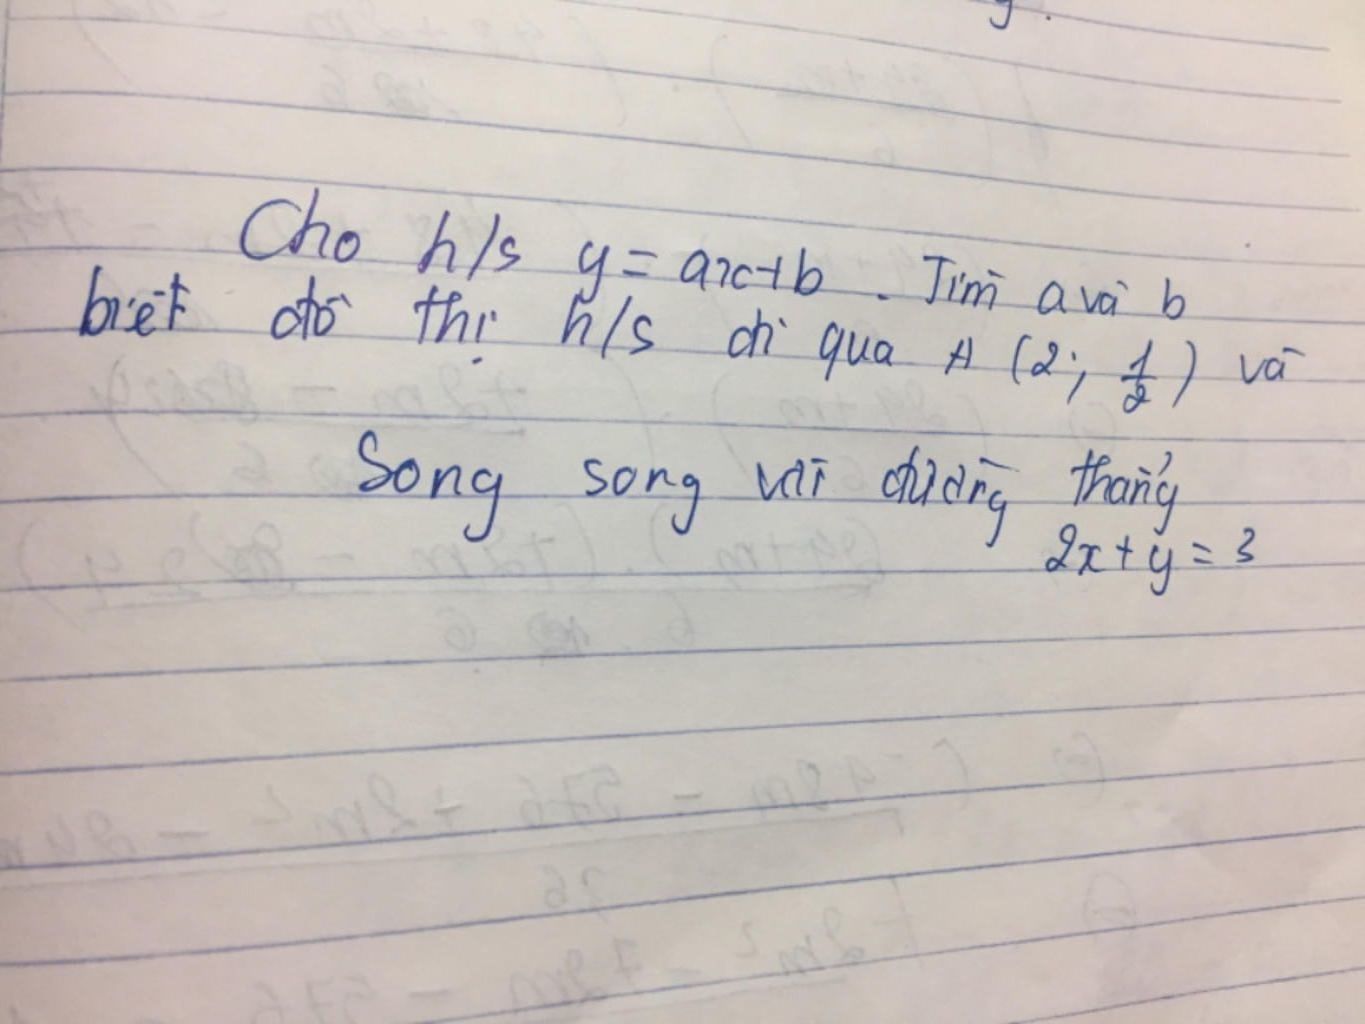 Cho h/s y = ax+b. Tìm a và b
biết đồ thị h/s đi qua A (2; 1/2) và
Song song với đường thẳng
2x + y = 3